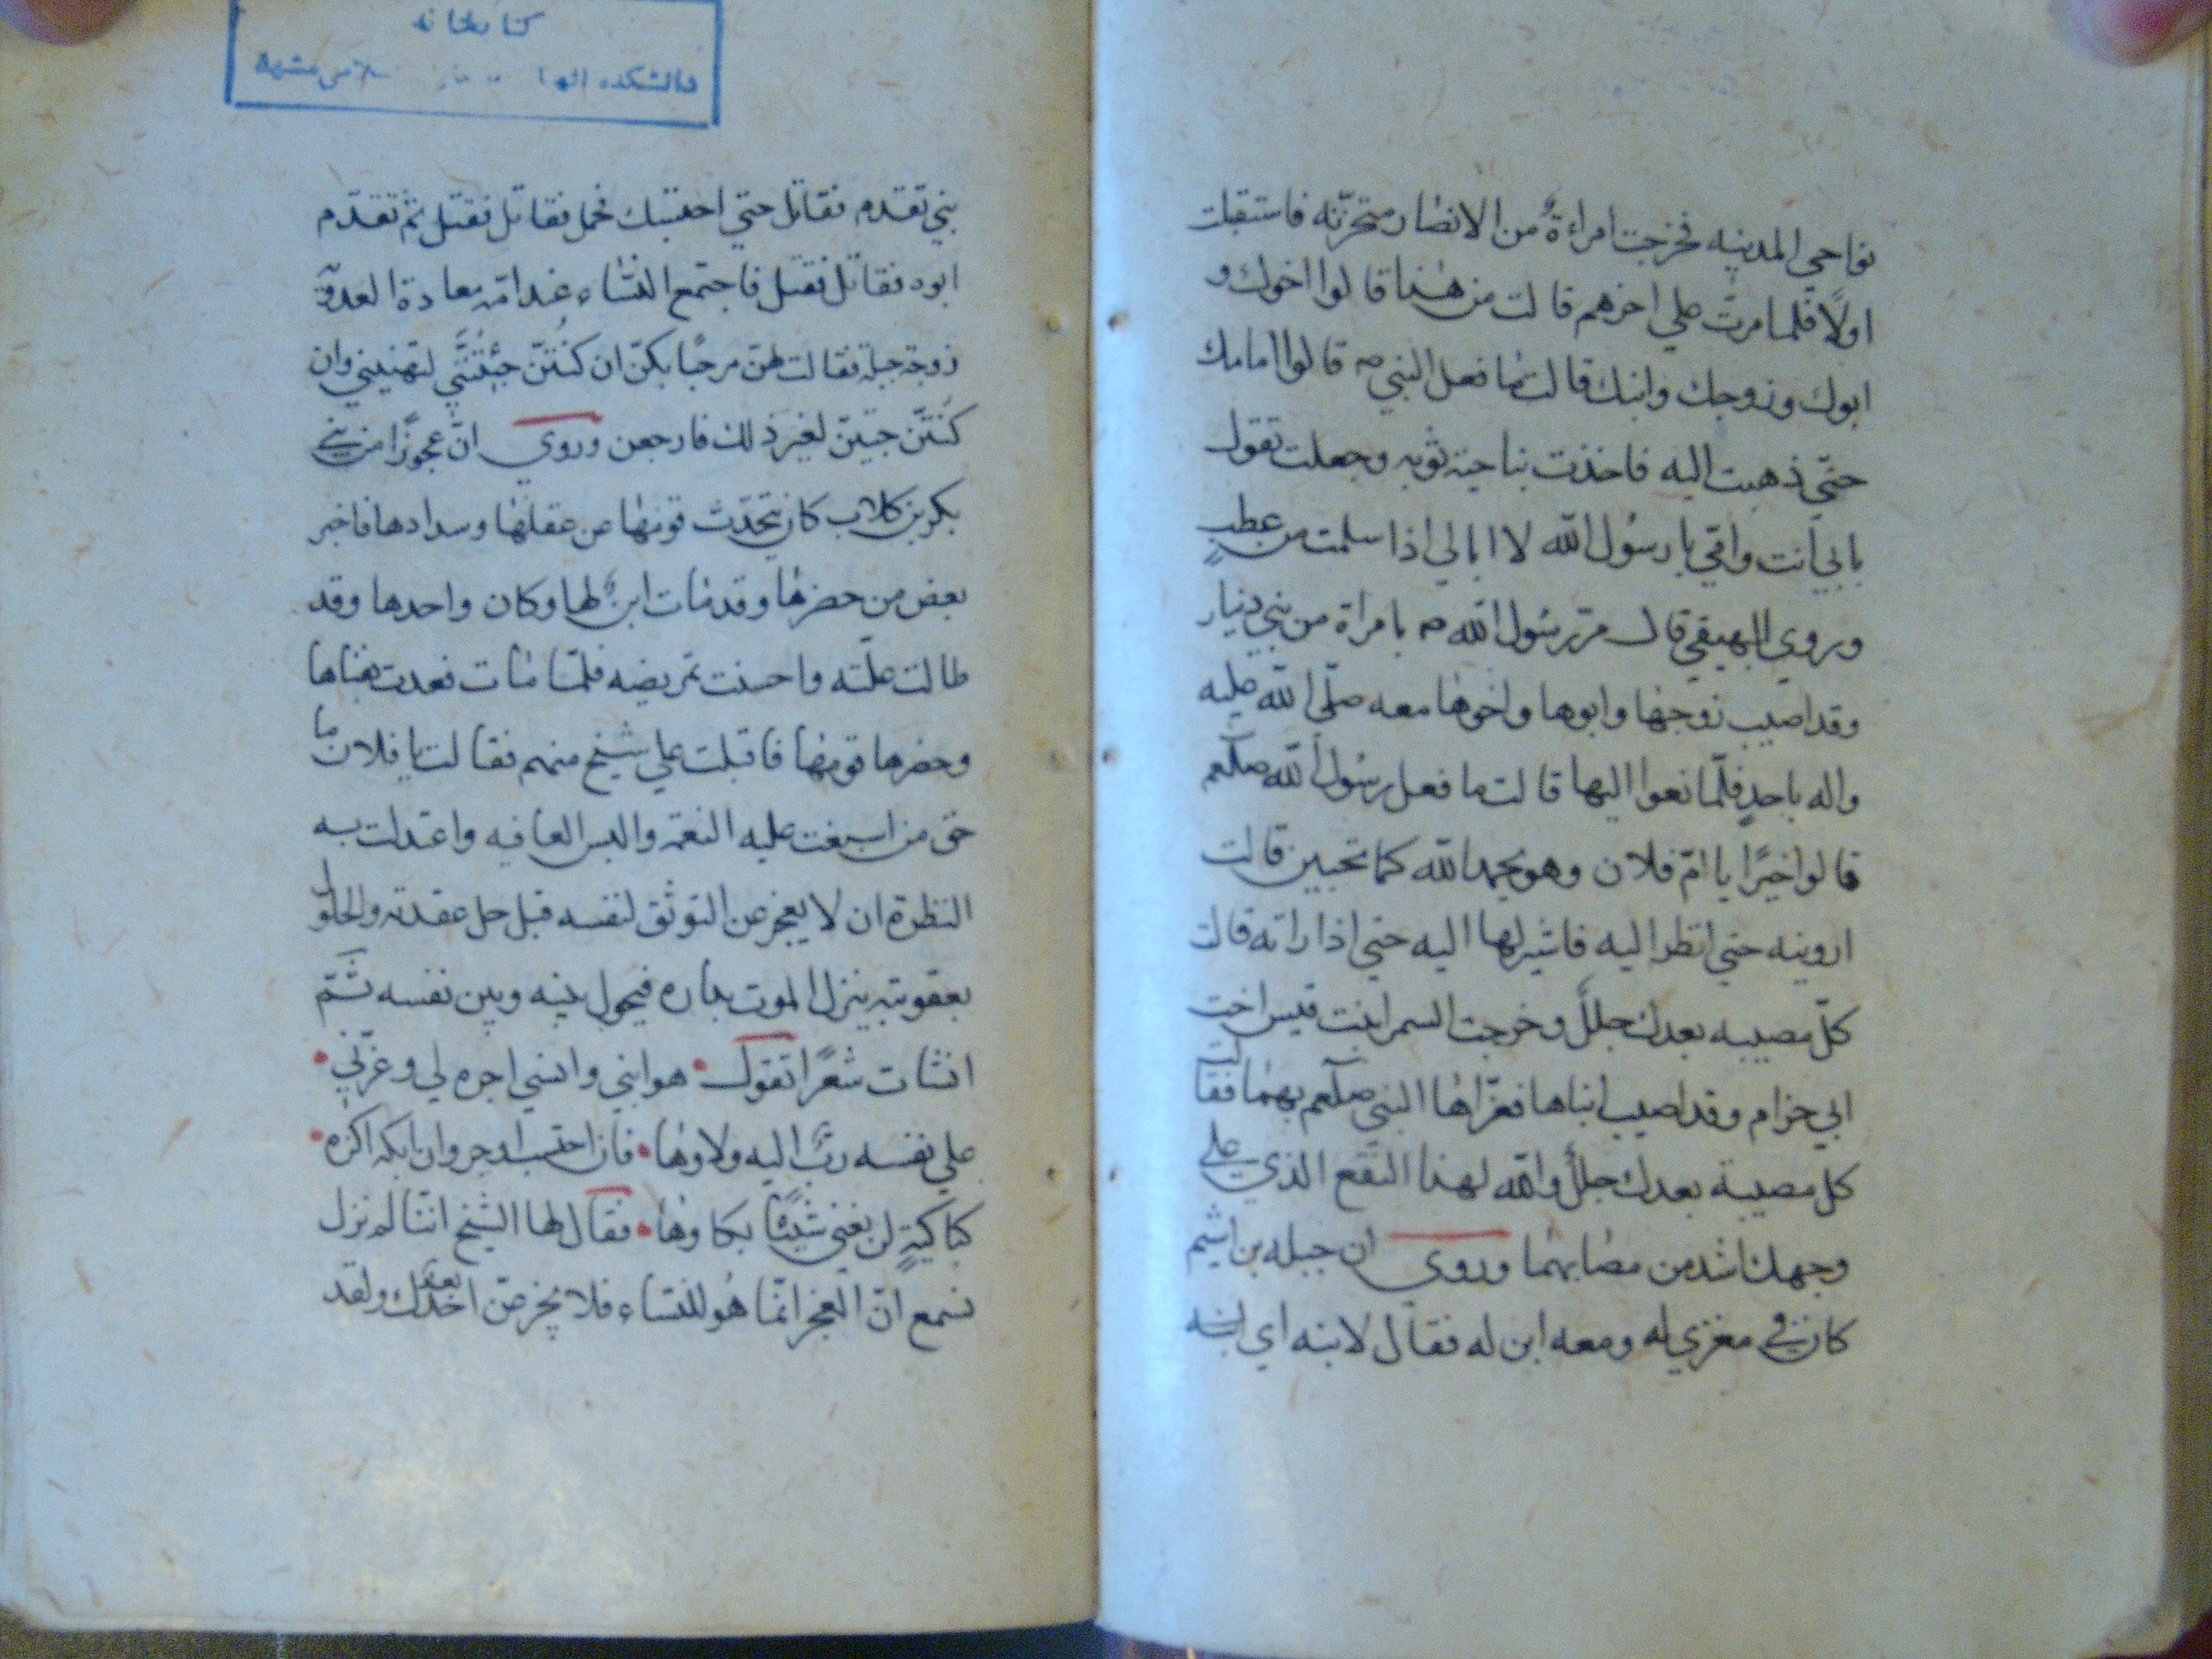 نواحي المدينه فخرجت امراءةٌ من الانصار متحزنه فاستقبلت
اولًا فلما مرت علي اخرهم قالت من هذا قالوا اخوك و
ابوك وزوجك وابنك قالت ما فعل النبي ص قالوا امامك
حتّي ذهبت اليه فاخذت بناحية ثوبه وجعلت تقول
بابي انت وامّي يا رسُول اللّه لا ابالي اذا سلمت من عطبٍ
وروي البهيقي قال مرّ رسُول اللّه ص بامراة من بني دينار
وقد اصيب زوجها وابوها واخوها معه صلّي اللّه عليه
واله باحدٍ فلمّا نعوا اليها قالت ما فعل رسُول اللّه صلعم
قالوا خيرًا يا امّ فلان وهو بحمد اللّه كما تحبين قالت
اروينه حتي انظر اليه فاشير لها اليه حتي اذا راته قالت
كلّ مصيبه بعدك جللٌ وخرجت السمرا بنت قيس اخت
ابي حزام وقد اصيب ابناها فعزّاها النبي صلعم بهما فقالت
كل مصيبة بعدك جللٌ واللّه لهذا النّقع الذي علي
وجهك اشد من مصابهما وروي ان جبله بن اشيم
كان في مغزي له ومعه ابن له فقال لابنه اي
كتابخانه
دانشكده الهيا
بني تقدم فقاتل حتي احتسبك فحمل فقاتل فقتل ثم تقدّم
ابوه فقاتل فقتل فاجتمع النسّاء عند امّه معادة العدوّيّة
زوجة جبلة فقالت لهنّ مرحبًا بكنّ ان كنُتنّ جئتُنَّي لتهنيني وان
كنُتنّ جيتنّ لغير ذلك فارجعن وروي انّ عجوزًا من بني
بكر بن كلاب كان يتحدّث قومها عن عقلها وسدادها فاخبر
بعض من حضرها وقد مات ابنٌ لها وكان واحدها وقد
طالت علّته واحسنت تمريضه فلمّا مات قعدت بفناها
وحضرها قومها فاقبلت علي شيخ منهم فقالت يا فلان ما
حق من اسبغت عليه النعمة والبس العافيه واعتدلت به
النظرة ان لا يعجز عن التوثق لنفسه قبل حل عقدته والحلول
بعقوبته ينزل الموت بداره فيحول بينه وبين نفسه ثمّ
انشات شعرًا تقول هو ابني وانسي اجره لي وعزّني
علي نفسه ربٌّ اليه ولاوها فان احتسب اوجر وان ابكه اكن
كباكيةٍ لن يغني شيئًا بكاوها فقال لها الشيخ انّا لم نزل
نسمع انّ العجز انمّا هُو للنساء فلا يجزعنّ احد بعدك ولقد